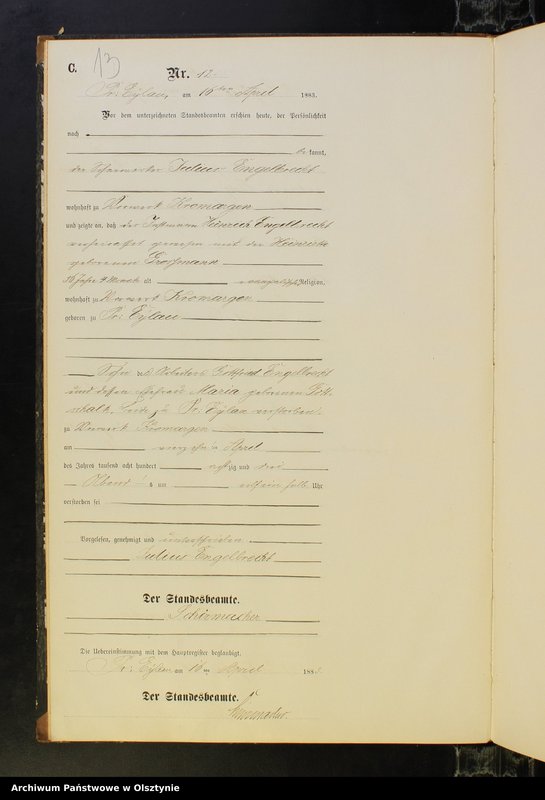 C. 13
Nr. 12
Pr. Eylau, am 16ten April 1883.
Vor dem unterzeichneten Standesbeamten erschien heute, der Persönlichkeit
nach
bekannt,
der Scharwerker Julius Engelbrecht
wohnhaft zu Vorwerk Kromargen
und zeigte an, daß der Instmann Heinrich Engelbrecht
verheirathet gewesen mit der Heinriette
geborenen Großmann
Jahre 4 Monate alt evangelischer Religion,
wohnhaft zu Vorwerk Kromargen
geboren zu Pr. Eylau
Sohn des Gottfried Engelbrecht
und dessen Ehefrau Maria geborenen Gott-
schalk, beide zu Pr. Eylau verstorben.
zu Vorwerk Kromargen
am April
des Jahres tausend acht hundert achtzig und drei
Abends um Uhr
verstorben sei
Vorgelesen, genehmigt und unterschrieben
Julius Engelbrecht
Der Standesbeamte.
Schirmacher
Die Uebereinstimmung mit dem Hauptregister beglaubigt.
Pr. Eylau am 16ten April 188
Der Standesbeamte.
Archiwum Państwowe w Olsztynie